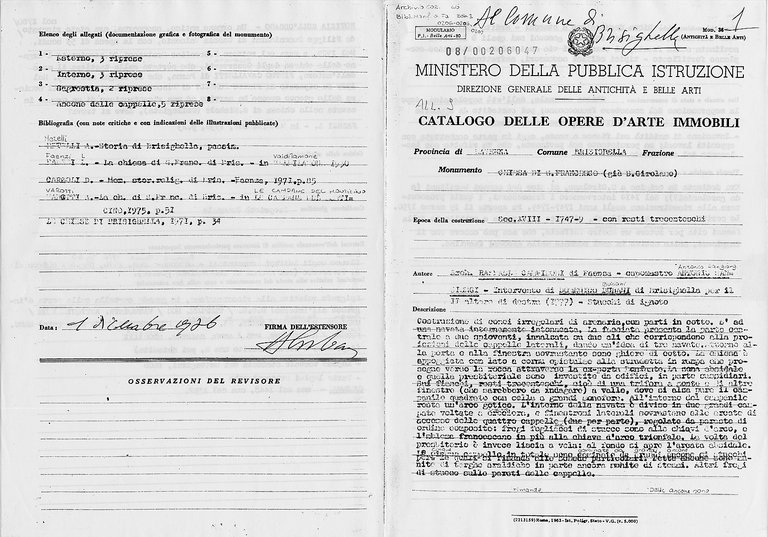 Elenco degli allegati (documentazione grafica e fotografica del monumento)
1 - Esterno, 3 riprese
2 - Interno, 3 riprese
3 - Sagrestia, 2 riprese
4 - Ancone delle cappelle, 5 riprese
5 -
6 -
7 -
8 -
Bibliografia (con note critiche e con indicazioni delle illustrazioni pubblicate)
Metelli
METELLI A.-Storia di Brisighella, passim.
- La chiesa di S.Franc. di Bris. - in
- Mem. stor.relig. di Bris. -Faenza, 1971,p.85
-La ch. di S.Franc. di Bris. - in LE CAMPANE DEL MONTICINO
CINO,1975, p.51
LE CHIESE DI BRISIGHELLA, 1971, p. 34
Data: 1 Dicembre 1976
FIRMA DELL'ESTENSORE
OSSERVAZIONI DEL REVISORE
Al Comune di
Brisighella
1
MODULARIO
P.I. - Belle Arti - 80
MOD. 34
(ANTICHITÀ E BELLE ARTI)
08/00206047
MINISTERO DELLA PUBBLICA ISTRUZIONE
DIREZIONE GENERALE DELLE ANTICHITÀ E BELLE ARTI
ALL. 9
CATALOGO DELLE OPERE D'ARTE IMMOBILI
Provincia di RAVENNA Comune BRISIGHELLA Frazione
Monumento CHIESA DI S. FRANCESCO (già S.Girolamo)
Epoca della costruzione Sec.XVIII - 1747-9 - con resti trecenteschi
Autore Arch. RAFFAELE CAMPIDORI di Faenza - capomastro ANTONIO
- Intervento di di Brisighella per il
II altare di destra (1777) - Stucchi di ignoto
Descrizione
Costruzione di conci irregolari di arenaria,con parti in cotto. E' ad
una navata internamente intonacata. La facciata presenta la parte cen-
trale a due spioventi, innalzata su due ali che corrispondono alla pro-
iezioni delle cappelle laterali, dando un'idea di tre navate. Attorno al-
la porta e alla finestra sovrastante sono ghiere di cotto. La chiesa è
appoggiata con lato a cornu epistolae alla stradetta in rampa che pro-
segue verso la rocca attraverso la ex-porta Bonfante. La zona absidale
e quella presbiteriale sono investite da edifici, in parte sussidiari.
Sui fianchi, resti trecenteschi, cioè di una trifora a ponte e di altre
finestre (che sarebbero da indagare) a valle, dove si alza pure il cam-
panile quadrato con cella a grandi monofore. All'interno del campanile
resta un'arco gotico. L'interno della navata è diviso in due grandi cam-
pate voltate a crociera, e finestroni laterali sovrastano alle arcate di
accesso delle quattro cappelle (due per parte), regolate da paraste di
ordine composito: fregi fogliacei di stucco sono alle chiavi d'arco, e
l'emblema francescano in più alla chiave d'arco trionfale. La volta del
presbiterio è invece liscia a vela: al fondo si apre l'arcata absidale.
nite di targhe araldiche in parte ancora munite di stemmi. Altri fregi
di stucco sulle pareti delle cappelle.
rimanda
Dette ancone sono
(2213159) Roma, 1963 - Ist. Poligr. Stato - V.G. (c. 5.000)